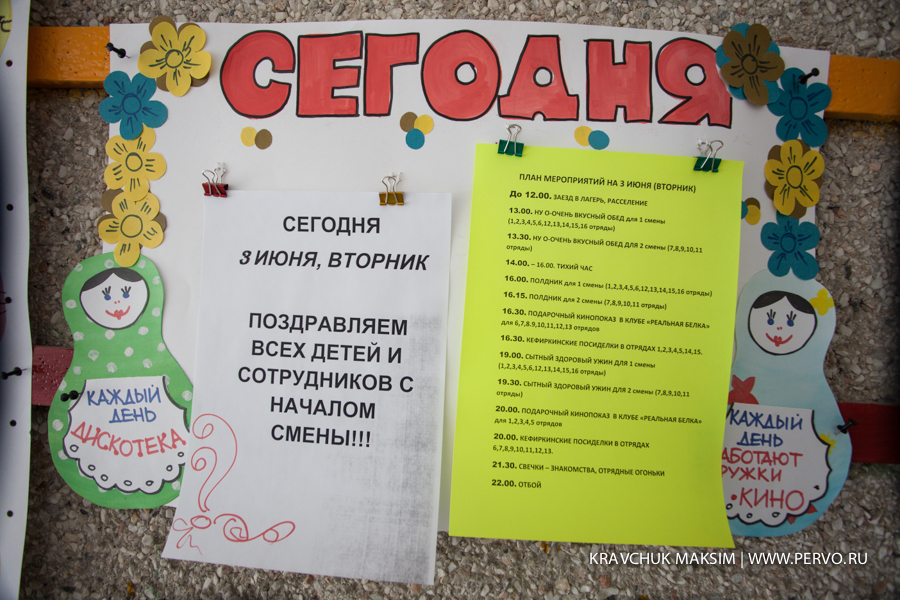 СЕГОДНЯ
СЕГОДНЯ
3 ИЮНЯ, ВТОРНИК
ПОЗДРАВЛЯЕМ
ВСЕХ ДЕТЕЙ И
СОТРУДНИКОВ С
НАЧАЛОМ
СМЕНЫ!!!
ПЛАН МЕРОПРИЯТИЙ НА 3 ИЮНЯ (ВТОРНИК)
До 12.00. ЗАЕЗД В ЛАГЕРЬ, РАССЕЛЕНИЕ
13.00. НУ О-ОЧЕНЬ ВКУСНЫЙ ОБЕД для 1 смены
(1,2,3,4,5,6,12,13,14,15,16 отряды)
13.30. НУ О-ОЧЕНЬ ВКУСНЫЙ ОБЕД ДЛЯ 2 смены (7,8,9,10,11
отряды)
14.00. – 16.00. ТИХИЙ ЧАС
16.00. ПОЛДНИК для 1 смены (1,2,3,4,5,6,12,13,14,15,16 отряды)
16.15. ПОЛДНИК для 2 смены (7,8,9,10,11 отряды)
16.30. ПОДАРОЧНЫЙ КИНОПОКАЗ В КЛУБЕ «РЕАЛЬНАЯ БЕЛКА»
для 6,7,8,9,10,11,12,13 отрядов
16.30. КЕФИРКИНСКИЕ ПОСИДЕЛКИ В ОТРЯДАХ 1,2,3,4,5,14,15.
19.00. СЫТНЫЙ ЗДОРОВЫЙ УЖИН для 1 смены
(1,2,3,4,5,6,12,13,14,15,16 отряды)
19.30. СЫТНЫЙ ЗДОРОВЫЙ УЖИН ДЛЯ 2 смены (7,8,9,10,11
отряды)
20.00. ПОДАРОЧНЫЙ КИНОПОКАЗ В КЛУБЕ «РЕАЛЬНАЯ БЕЛКА»
для 1,2,3,4,5 отрядов
20.00. КЕФИРКИНСКИЕ ПОСИДЕЛКИ В ОТРЯДАХ
6,7,8,9,10,11,12,13.
21.30. СВЕЧКИ – ЗНАКОМСТВА, ОТРЯДНЫЕ ОГОНЬКИ
22.00. ОТБОЙ
КАЖДЫЙ
ДЕНЬ
ДИСКОТЕКА
КАЖДЫЙ
ДЕНЬ
АБОТАЮТ
РУЖКИ
КИНО
KRAVCHUK MAKSIM | WWW.PERVO.RU